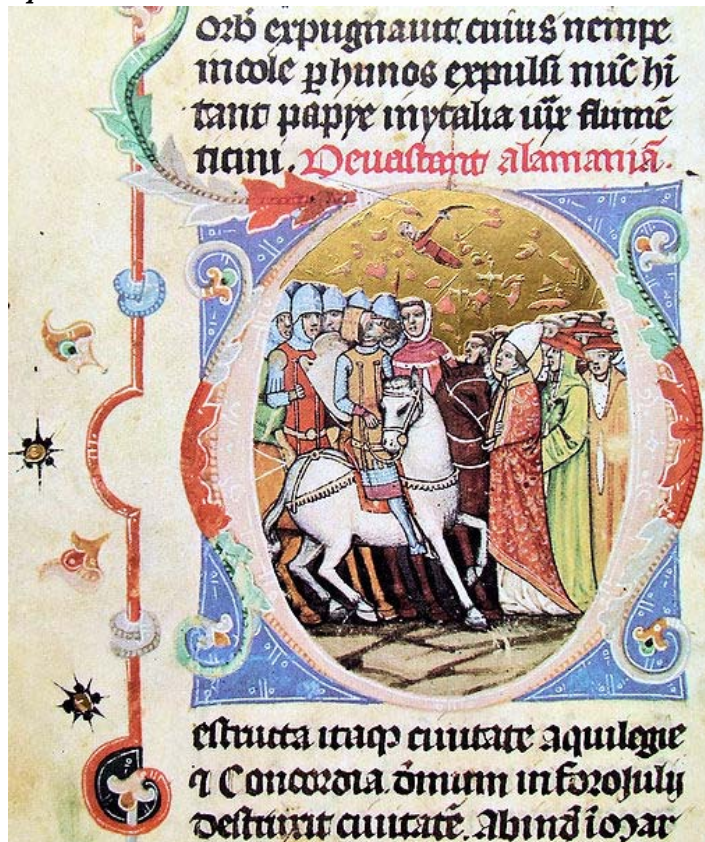 orb expugnauit cuius nempe
incole p hunos expulsi nuc hi
tant papye in ytalia iux flume
ticini. Deuastant alamania.
estructa itaq ciuitate aquilegie
⁊ Concordia. omum in foro Julij
destruxit ciuitate. Abind i mar